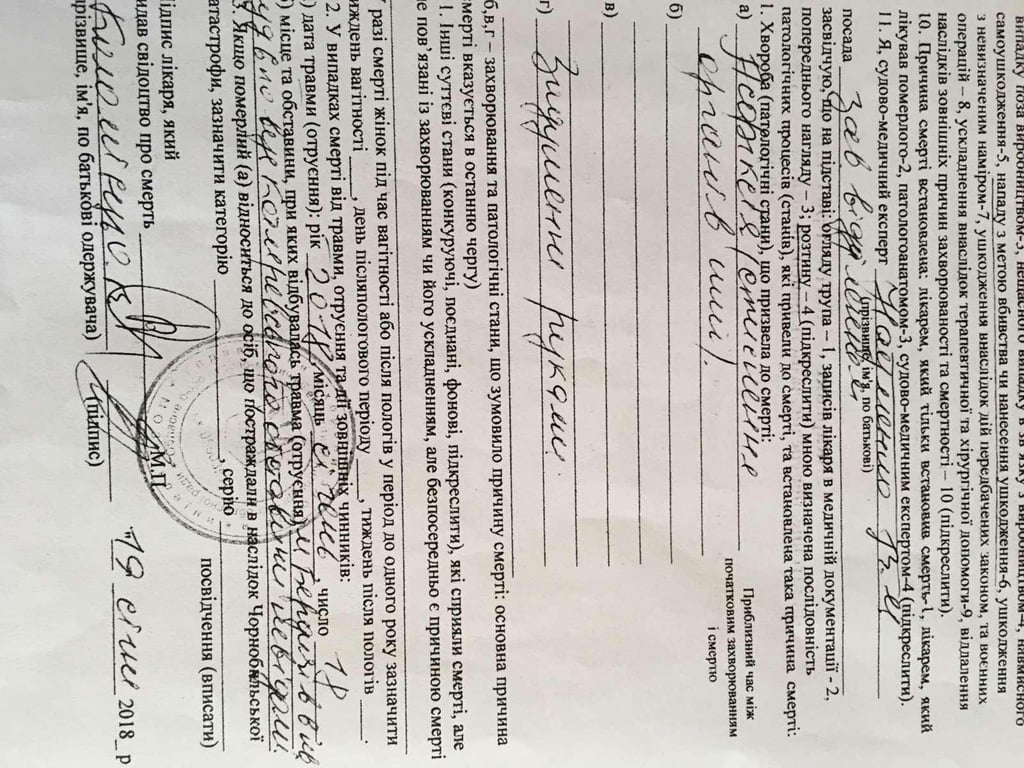 випадку поза виробництвом-3, нещасного випадку в зв'язку з виробництвом-4, навмисного
самоушкодження-5, нападу з метою вбивства чи нанесення ушкодження-6, ушкодження
з невизначеним наміром-7, ушкодження внаслідок дій передбачених законом, та воєнних
операцій – 8, ускладнення внаслідок терапевтичної та хірургічної допомоги-9, віддалення
наслідків зовнішніх причин захворюваності та смертності – 10 (підкреслити).
10. Причина смерті встановлена: лікарем, який тільки встановив смерть-1, лікарем, який
лікував померлого-2, патологоанатомом-3, судово-медичним експертом-4 (підкреслити).
11. Я, судово-медичний експерт
(прізвище, ім'я, по батькові)
посада Зав від
засвідчую, що на підставі: огляду трупа – 1, записів лікаря в медичній документації - 2,
попереднього нагляду – 3; розтину – 4 (підкреслити) мною визначена послідовність
патологічних процесів (станів), які привели до смерті, та встановлена така причина смерті:
1. Хвороба (патологічні стани), що призвела до смерті:
Приблизний час між
початковим захворюванням
і смертю
а) Асфіксія (стиснення
органів шиї).
б)
в)
г) Задушення руками.
б,в,г – захворювання та патологічні стани, що зумовило причину смерті: основна причина
смерті вказується в останню чергу)
1. Інші суттєві стани (конкуруючі, поєднані, фонові, підкреслити), які сприяли смерті, але
не пов'язані із захворюванням чи його ускладненням, але безпосередньо є причиною смерті
У разі смерті жінок під час вагітності або після пологів у період до одного року зазначити
тиждень вагітності ____, день післяпологового періоду ____, тиждень після пологів ____.
2. У випадках смерті від травми, отруєння та дії зовнішніх чинників:
) дата травми (отруєння): рік 2018 місяць січень число 18
) місце та обставини, при яких відбувалась травма (отруєння) м Бердичів
3. Якщо померлий (а) відноситься до осіб, що постраждали в наслідок Чорнобильської
катастрофи, зазначити категорію ____, серію ____ посвідчення (вписати)
підпис лікаря, який
видав свідоцтво про смерть М.П.
19 січня 2018_р
прізвище, ім'я, по батькові одержувача) (підпис)